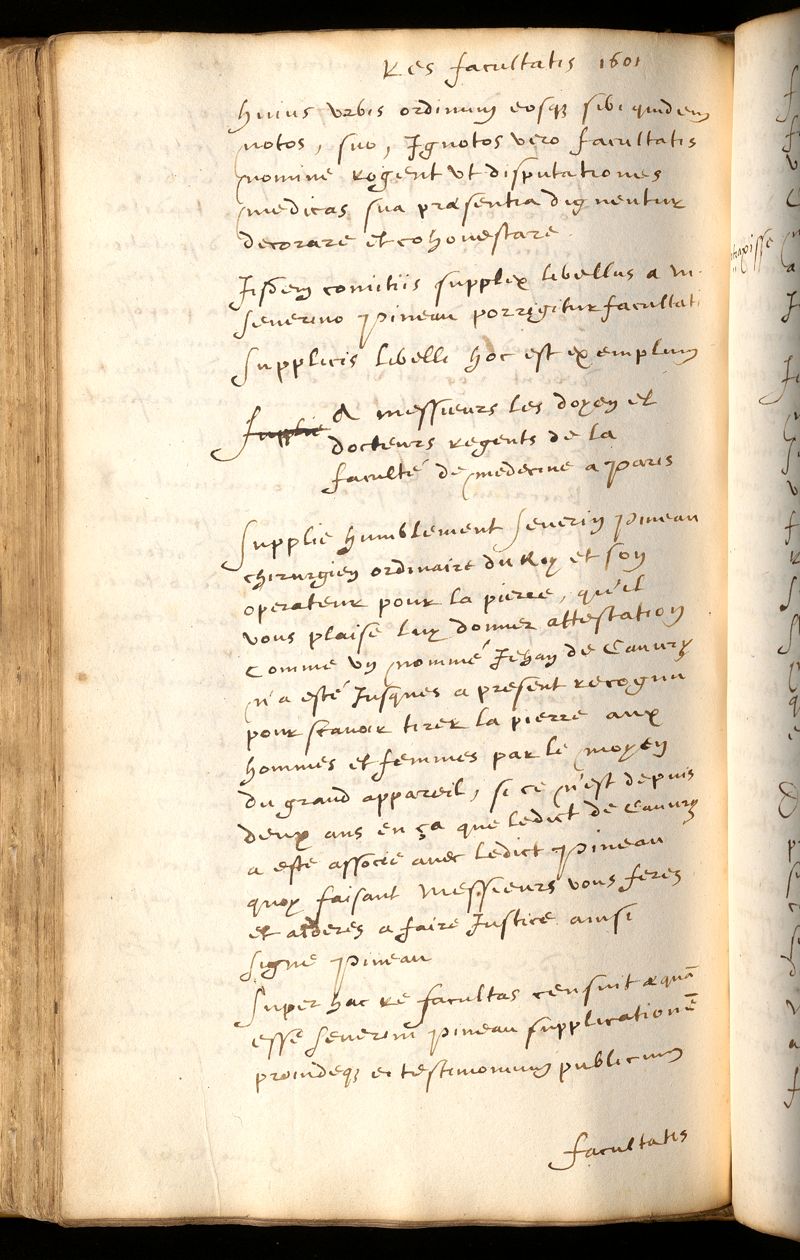 Res facultatis 1601
huius urbis ordinum eosq; sibi quidem
notos, suo, Ignotos vero facultatis
nomine rogent ut disputationes
medicas sua præsentia dignentur
decorare et cohonestare.
Iisdem comitiis supplex libellus a M.
Severino Pineau porrigitur facultati
Supplicis libelli hoc est exemplum
Supplie A messieurs les doyen et
docteurs regents de la
faculté de medecine a Paris
Supplie humblement Severin Pineau
chirurgien ordinaire du Roy et son
operateur pour la pierre, qu'il
vous plaise luy donner attestation
Comme un nommé Jehan de Cauvry
n'a esté Jusques a present recognu
pour scavoir tirer la pierre aux
hommes et femmes par le moyen
du grand appareil, si ce n'est depuis
deux ans en ça que ledict de Cauvry
a esté associé avec ledict Pineau
quoy faisant Messieurs vous ferez
et aideres a faire Justice ainsi
signé Pineau
Super hac re facultas censuit æquā
esse Severini Pineau supplicationē
proindeq; ei testimonium publicum
facultatis